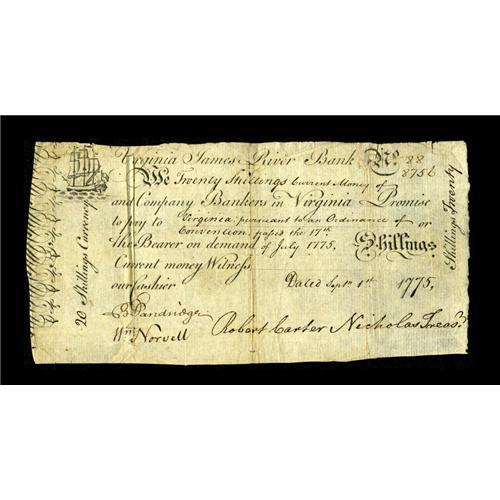 Virginia James River Bank No. 88
8756
We Twenty Shillings Current Money of
and Company Bankers in Virginia Promise
to pay to Virginea: pursuant to an Ordinance of or
Convention passed the 17th
the Bearer on demand of July 1775. Shillings
Current money Witness
our Cashier Dated Septr. 1st 1775,
B Dandridge
Wm. Norvell Robert Carter Nicholas Treasr.
20 Shillings Currency
Shillings Twenty